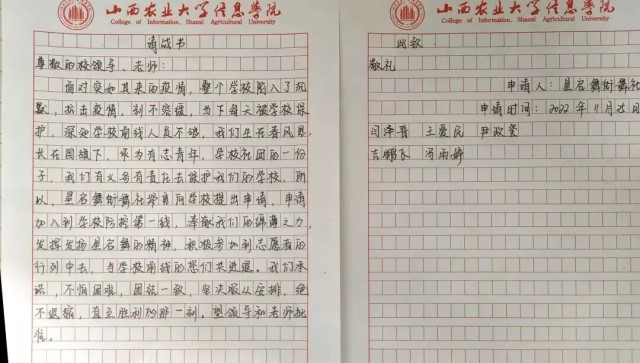 山西农业大学信息学院
College of Information, Shanxi Agricultural University
请战书
尊敬的校领导、老师:
面对突如其来的疫情,整个学校陷入了沉
默,抗击疫情,刻不容缓,当下每天被学校保
护,深知学校前线人员不够,我们生在春风里,
长在国旗下,作为有志青年,学校社团的一份
子,我们有义务有责任去维护我们的学校,所
以,星启舞街舞社学员向学校提出申请,申请
加入到学校防控第一线,奉献我们的绵薄之力,
发挥发扬星启舞的精神,积极参加到志愿者的
行列中去,与学校前线的您们共进退。我们承
诺,不怕困难,团结一致,坚决服从安排,绝
不退缩,直至胜利的那一刻。望领导和老师批
准。
山西农业大学信息学院
College of Information, Shanxi Agricultural University
此致
敬礼
申请人:星启舞街舞社
申请时间:2022年11月25日
闫宇晋 王曼民 尹政奎
吉鹏飞 冯雨婷